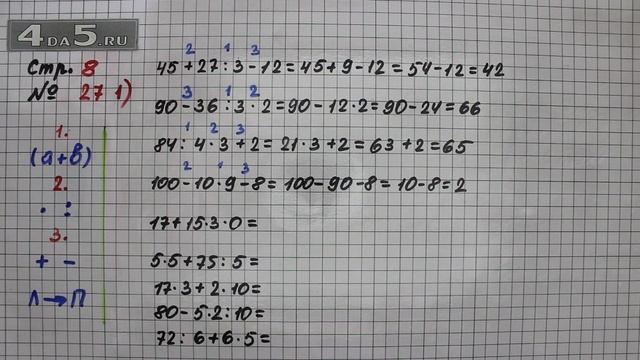 4DA5.RU
Стр. 8
№ 27 1)
1.
(а+в)
2.
· :
3.
+ −
Л→П
2 1 3
45+27:3−12=45+9−12=54−12=42
3 1 2
90−36:3·2=90−12·2=90−24=66
1 2 3
84:4·3+2=21·3+2=63+2=65
2 1 3
100−10·9−8=100−90−8=10−8=2
17+15·3·0=
5·5+75:5=
17·3+2·10=
80−5·2:10=
72:6+6·5=